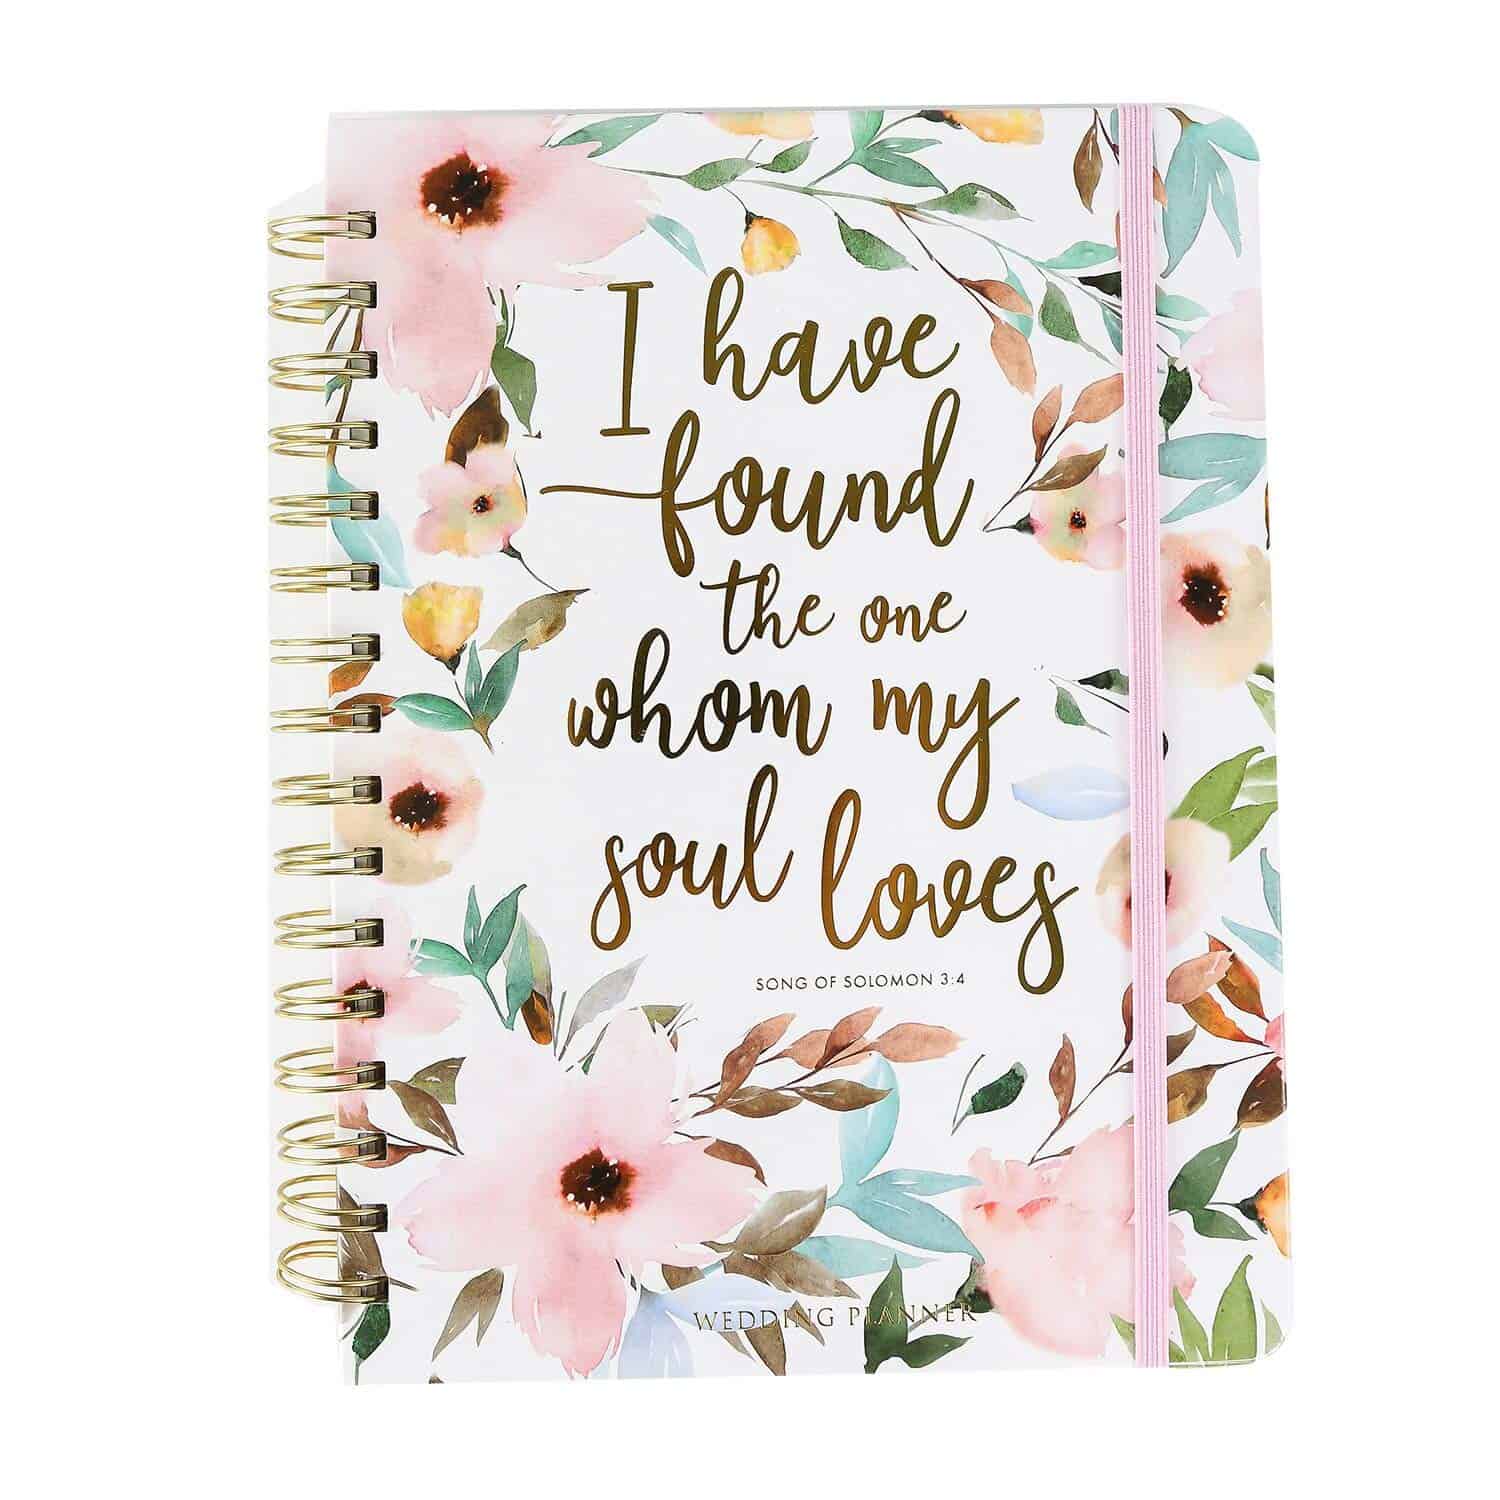 I have
found
the one
whom my
soul loves
SONG OF SOLOMON 3:4
WEDDING PLANNER